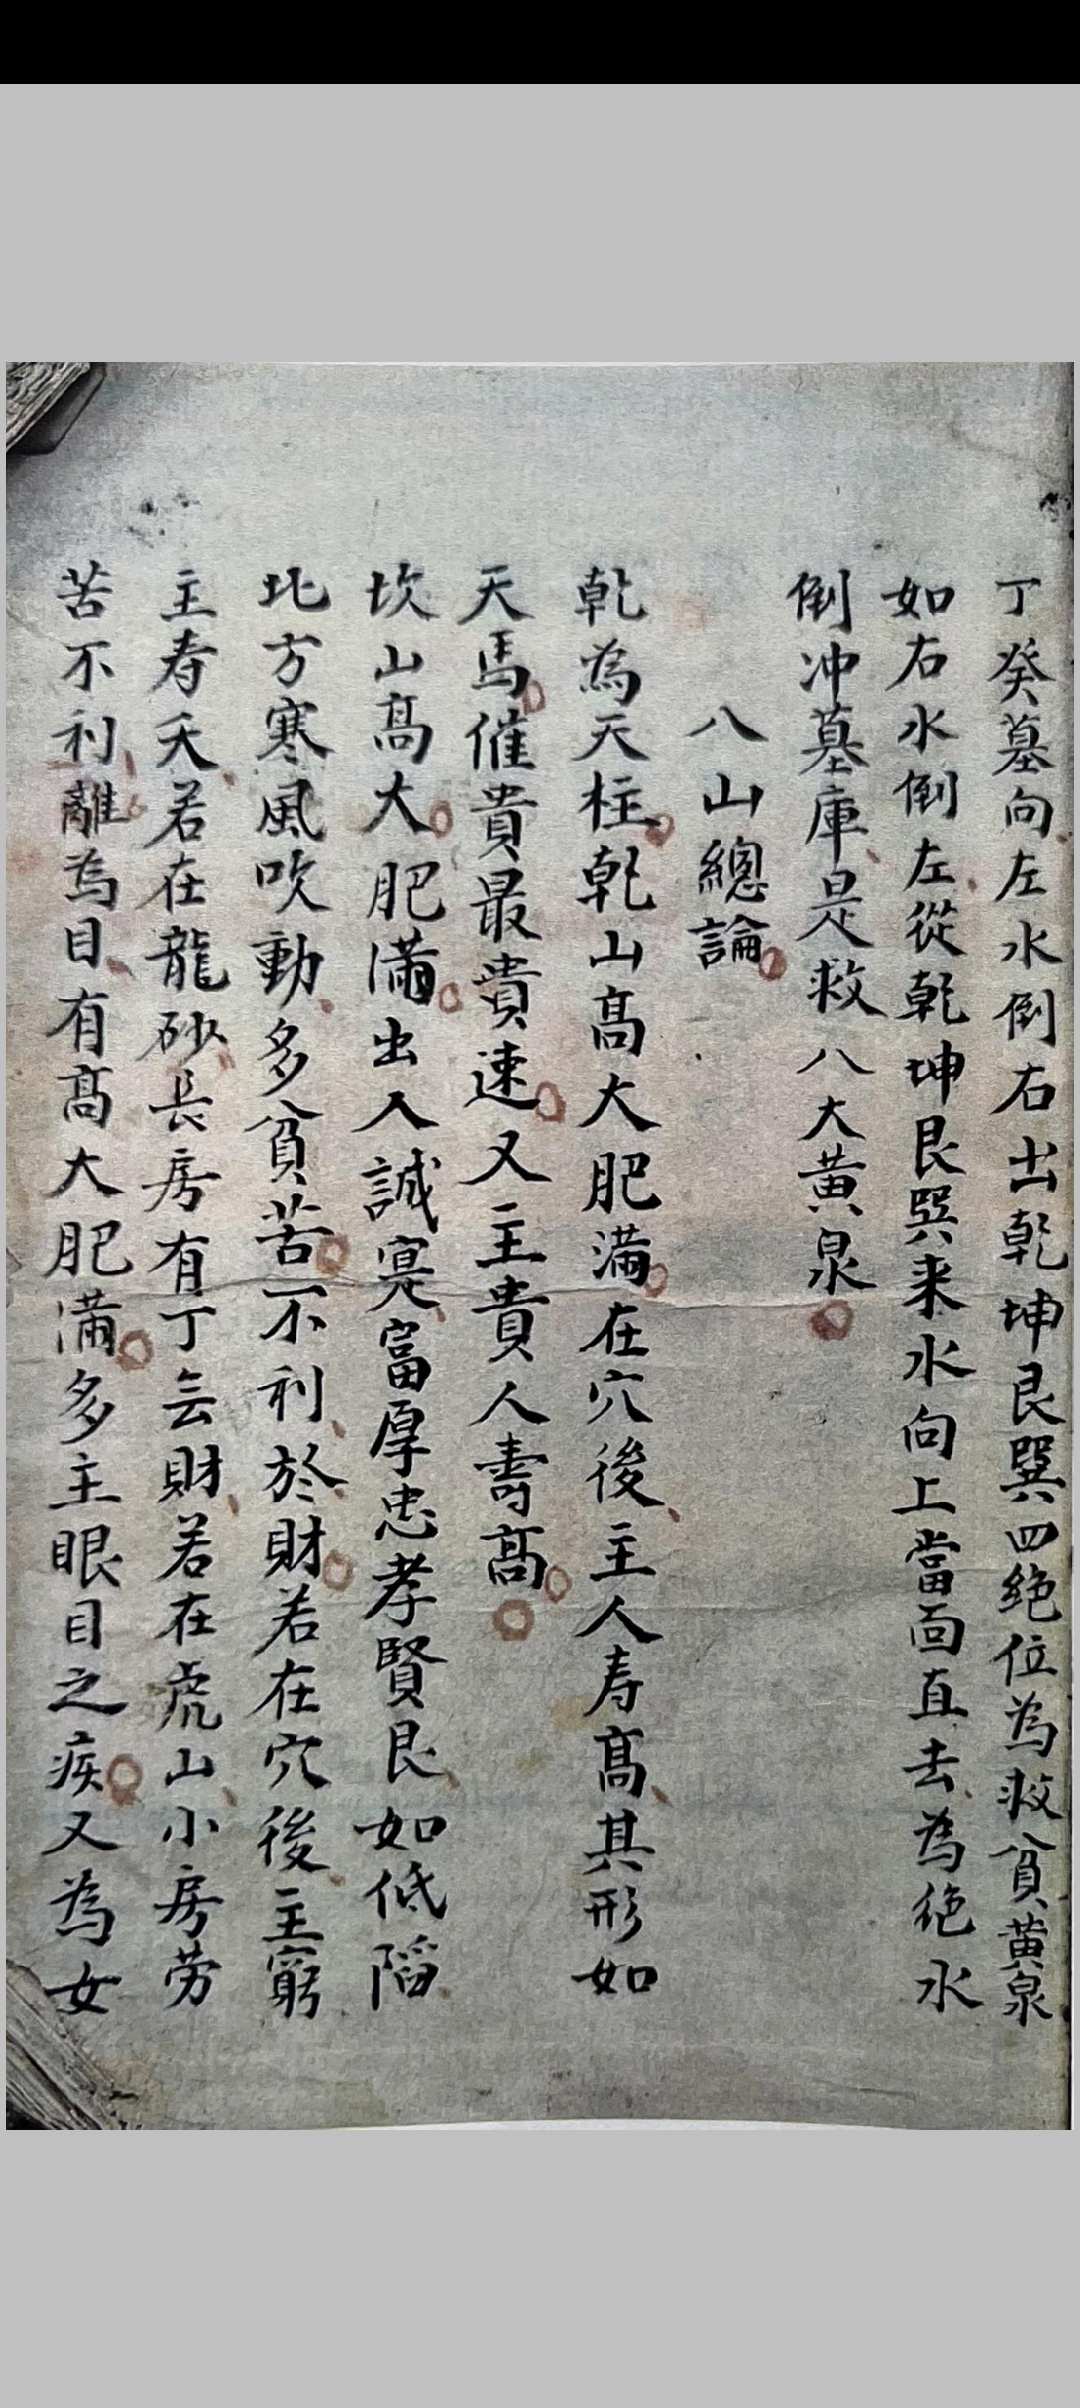 丁癸墓向左水倒右出乾坤艮巽四绝位為救貧黄泉
如右水倒左從乾坤艮巽来水向上當面直去為绝水
倒冲墓庫是救八大黄泉
八山總論
乾為天柱乾山高大肥满在穴後主人寿高其形如
天馬催貴最貴速又主貴人壽高
坎山高大肥满出入誠寔富厚忠孝賢良如低陷
北方寒風吹動多貧苦不利於財若在穴後主窮
主寿夭若在龍砂長房有丁无財若在虎山小房劳
苦不利離為目有高大肥满多主眼目之疾又為女